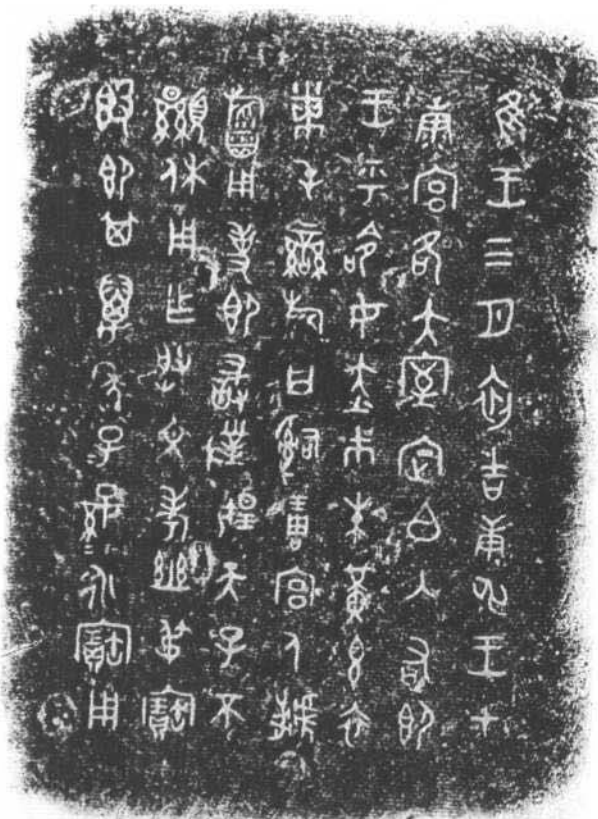 隹王三月初吉庚申王才
康宮各大室定白入右即
王乎命女赤巿朱黃玄衣
黹屯䜌旂曰嗣琱宮人虢
旃用事即敢對揚天子不
顯休用乍朕文考幽弔寶
簋即其萬年子孫=永寶用